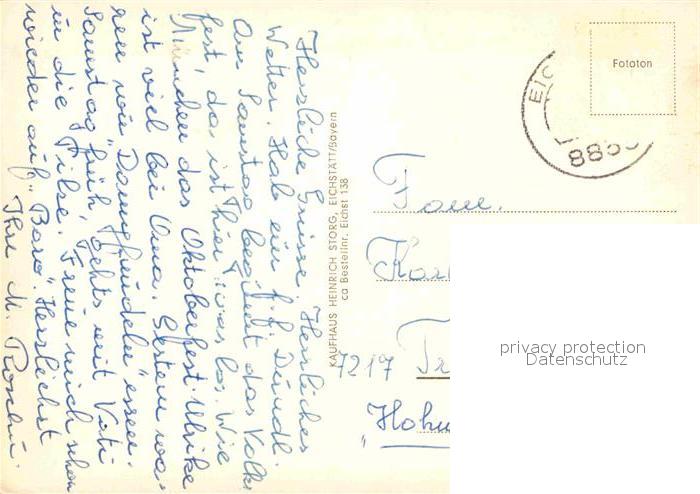 Herzliche Grüsse. Herrliches
Wetter. Hab ein f. f. Dirndl.
Am Samstag beginnt das Volks-
fest, da ist hier was los. Wie
München das Oktoberfest. Ulrike
ist viel bei Oma. Gestern wa-
ren wir "Dampfnudeln" essen.
Samstag früh, gehts mit Vati
in die Pilse. Freue mich schon
wieder auf "Baro". Herzlichst
Ihre M.
KAUFHAUS HEINRICH STORG, EICHSTÄTT/Bayern
ca Bestellnr. Eichst 138
Fototon
EIC
Fam.
7217
privacy protection
Datenschutz